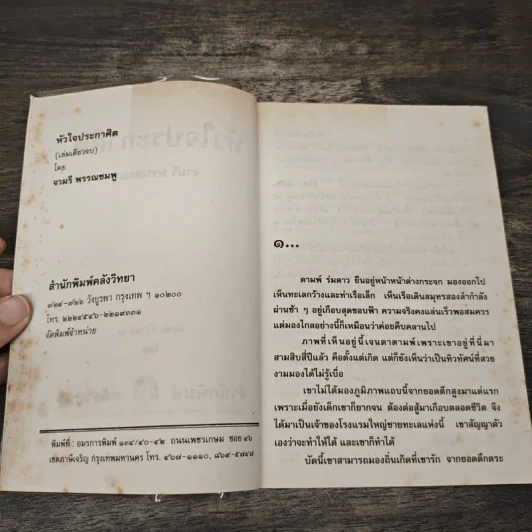 หัวใจประกาศิต
(เล่มเดียวจบ)
โดย
จามรี พรรณชมพู
สำนักพิมพ์คลังวิทยา
๗๒๔-๗๒๖ วังบูรพา กรุงเทพ ฯ ๑๐๒๐๐
โทร. ๒๒๔๕๔๖-๒๒๑๙๓๓๑
จัดพิมพ์จำหน่าย
พิมพ์ที่ : อมรการพิมพ์ ๑๓๙/๔๐-๔๒ ถนนเพชรเกษม ซอย ๔๖
เขตภาษีเจริญ กรุงเทพมหานคร โทร. ๔๖๗-๑๑๑๐, ๘๖๙-๕๗๔๗
๑...
ดามพ์ ร่มดาว ยืนอยู่หน้าหน้าต่างกระจก มองออกไป
เห็นทะเลกว้างและท่าเรือเล็ก เห็นเรือเดินสมุทรสองลำกำลัง
ผ่านช้า ๆ อยู่เกือบสุดขอบฟ้า ความจริงคงแล่นเร็วพอสมควร
แต่มองไกลอย่างนี้ก็เหมือนว่าค่อยคืบคลานไป
ภาพที่เห็นอยู่นี้เจนตาดามพ์เพราะเขาอยู่ที่นี่มา
สามสิบสี่ปีแล้ว คือตั้งแต่เกิด แต่ก็ยังเห็นว่าเป็นทิวทัศน์ที่สวย
งามมองได้ไม่รู้เบื่อ
เขาไม่ได้มองภูมิภาพแถบนี้จากยอดตึกสูงมาแต่แรก
เพราะเมื่อยังเด็กเขาก็ยากจน ต้องต่อสู้มาเกือบตลอดชีวิต จึง
ได้มาเป็นเจ้าของโรงแรมใหญ่ชายทะเลแห่งนี้ เขาสัญญาตัว
เองว่าจะทำให้ได้ และเขาก็ทำได้
บัดนี้เขาสามารถมองถิ่นเกิดที่เขารัก จากยอดตึกตระ